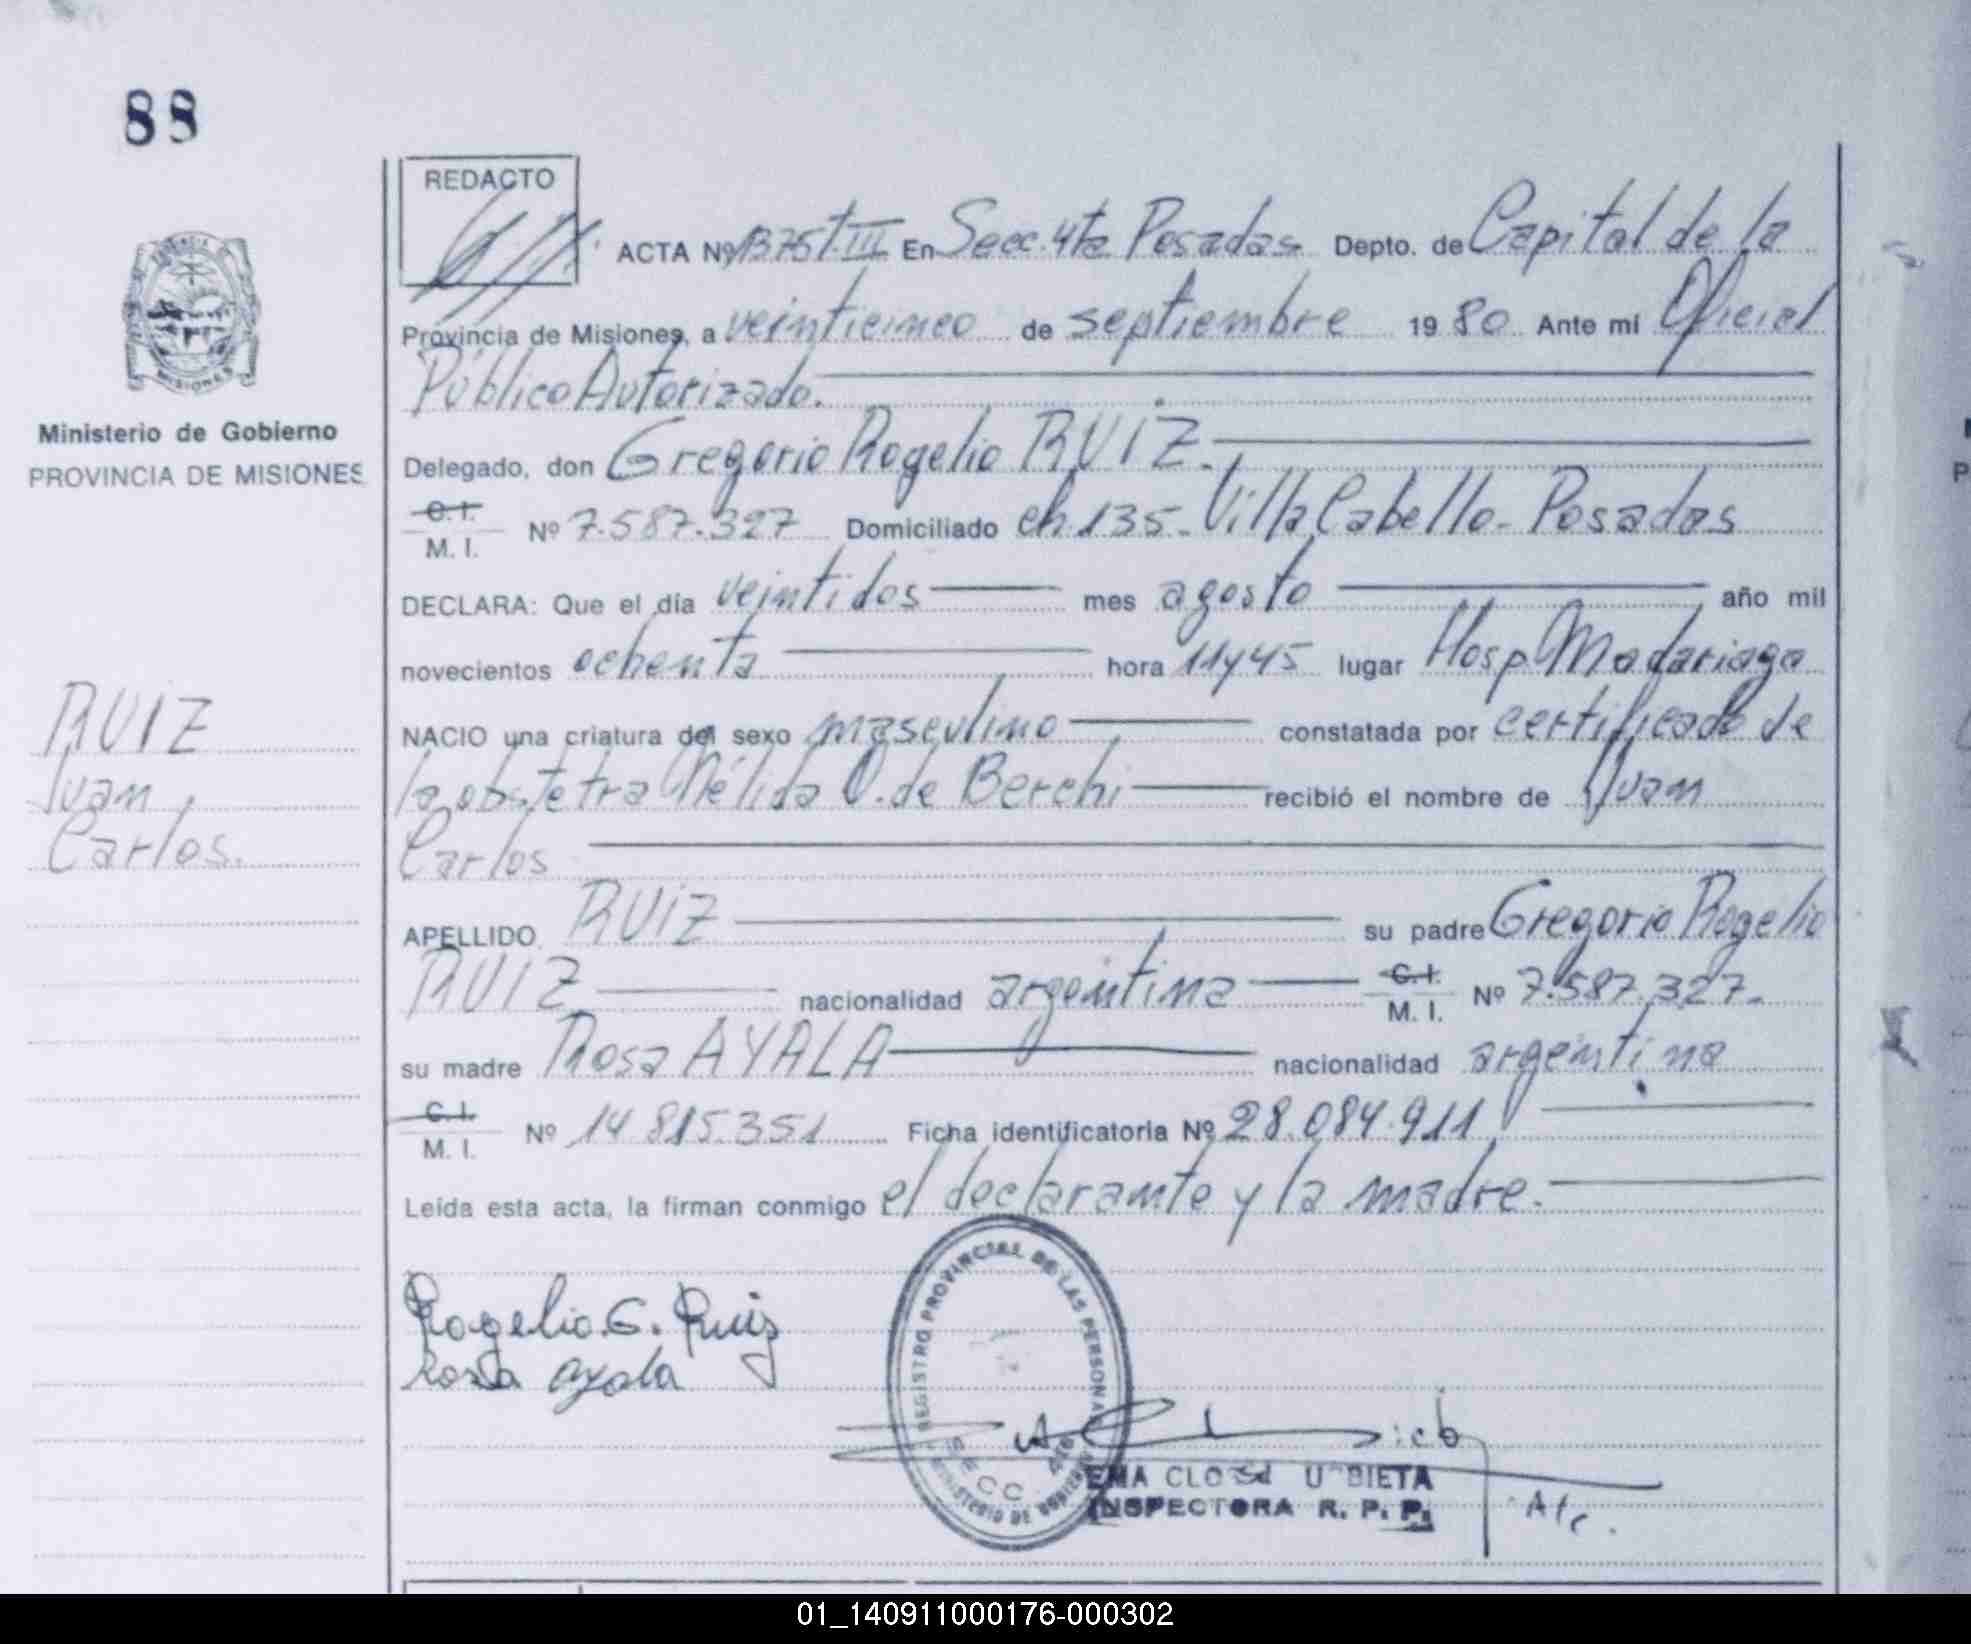 88
REDACTO
ACTA Nº 1375 T.III En Secc. 4ta Posadas Depto. de Capital de la
Provincia de Misiones, a veinticinco de septiembre 1980 Ante mi Oficial
Público Autorizado.
Delegado, don Gregorio Rogelio RUIZ.
C. I.
M. I. Nº 7.587.327 Domiciliado ch. 135 - Villa Cabello - Posadas
DECLARA: Que el día veintidos mes agosto año mil
novecientos ochenta hora 11y45 lugar Hosp. Madariaga
NACIO una criatura del sexo masculino constatada por certificado de
la obstetra Nélida O. de Berchi recibió el nombre de Juan
Carlos
APELLIDO RUIZ su padre Gregorio Rogelio
RUIZ nacionalidad argentina C. I.
M. I. Nº 7.587.327.
su madre Rosa AYALA nacionalidad argentina
C. I.
M. I. Nº 14.815.351 Ficha identificatoria Nº 28.084.911
Leída esta acta, la firman conmigo el declarante y la madre.
Rogelio. G. Ruiz
Rosa ayala
REGISTRO PROVINCIAL DE LAS PERSONAS
SECC 4ta
MINISTERIO DE GOBIERNO
EMA
INSPECTORA R. P. P.
MISIONES
Ministerio de Gobierno
PROVINCIA DE MISIONES
RUIZ
Juan
Carlos.
01_140911000176-000302